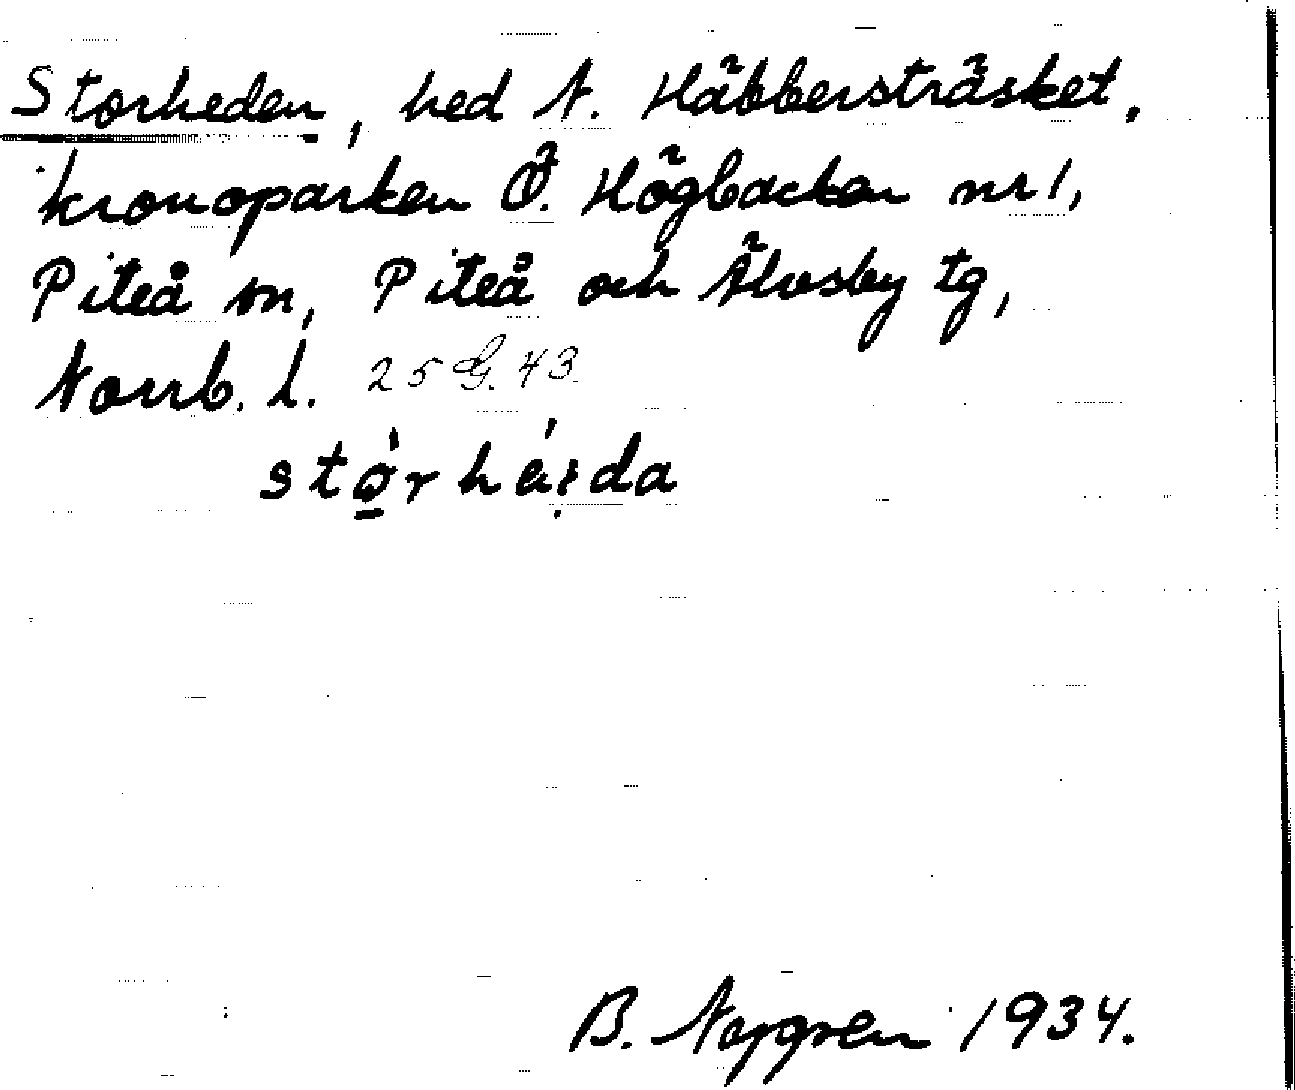 Storheden, hed N. Häbbersträsket,
kronoparken Ö. Högbacken nr 1,
Piteå sn, Piteå och Älvsby tg,
Norrb. l. 25 G. 43
B. 1934.